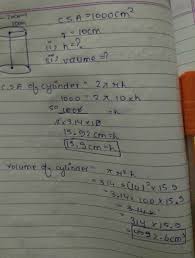 C.S.A = 1000cm²
r = 10cm
ii, h = ?
volume = ?
C.S.A of cylinder = 2πrh
1000 = 2π10xh
= h
15.92 cm = h
15.9cm = h
Volume of cylinder = πr²h
= 3.14 x (10)² x 15.9
= 3.14 x 100 x 15.9
= 314 x 15.9